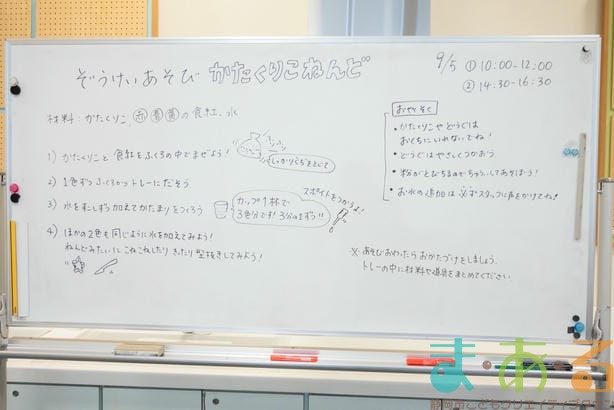 ぞうけいあそび かたくりこねんど
9/5 ① 10:00-12:00
② 14:30-16:30
材料：かたくりこ、赤 青 黄 の食紅、水
1) かたくりこと食紅をふくろの中でまぜよう！
しっかりくちをとじて
2) 1色ずつふくろからトレーにだそう
3) 水をすこしずつ加えてかたまりをつくろう
カップ1杯で
3色分です！3分の1ずつ!!
スポイトをつかうよ！
4) ほかの2色も同じように水を加えてみよう！
ねんどみたいにこねこねしたり きったり 型抜きしてみよう！
おやくそく
・かたくりこやどうぐは
おくちにいれないでね！
・どうぐはやさしくつかおう。
・粉がとびちるのでちゅういしてあそぼう！
・お水の追加は必ずスタッフに声をかけてね！
※ あそびおわったら おかたづけをしましょう。
トレーの中に材料や道具をまとめてください
ま・あ・る